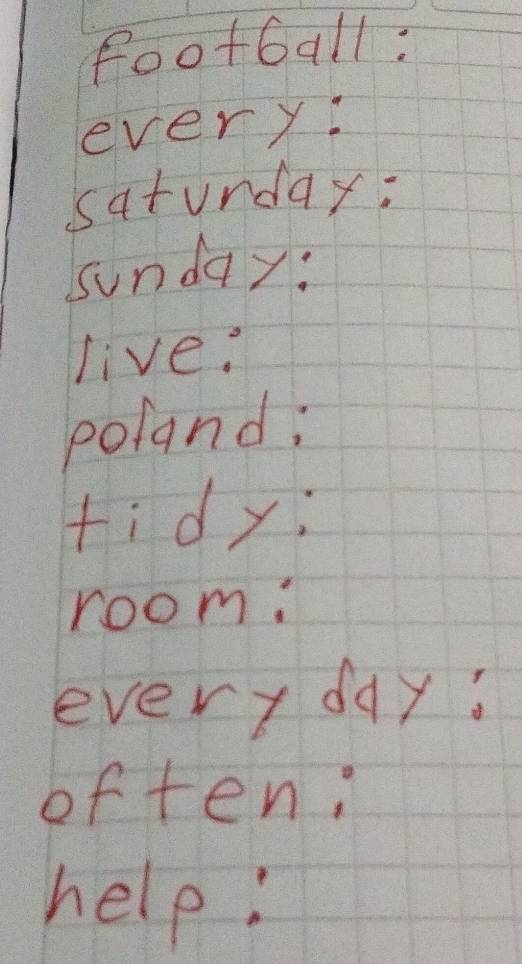 football:
every:
saturday:
sunday:
live:
poland:
tidy:
room:
every day:
often:
help: